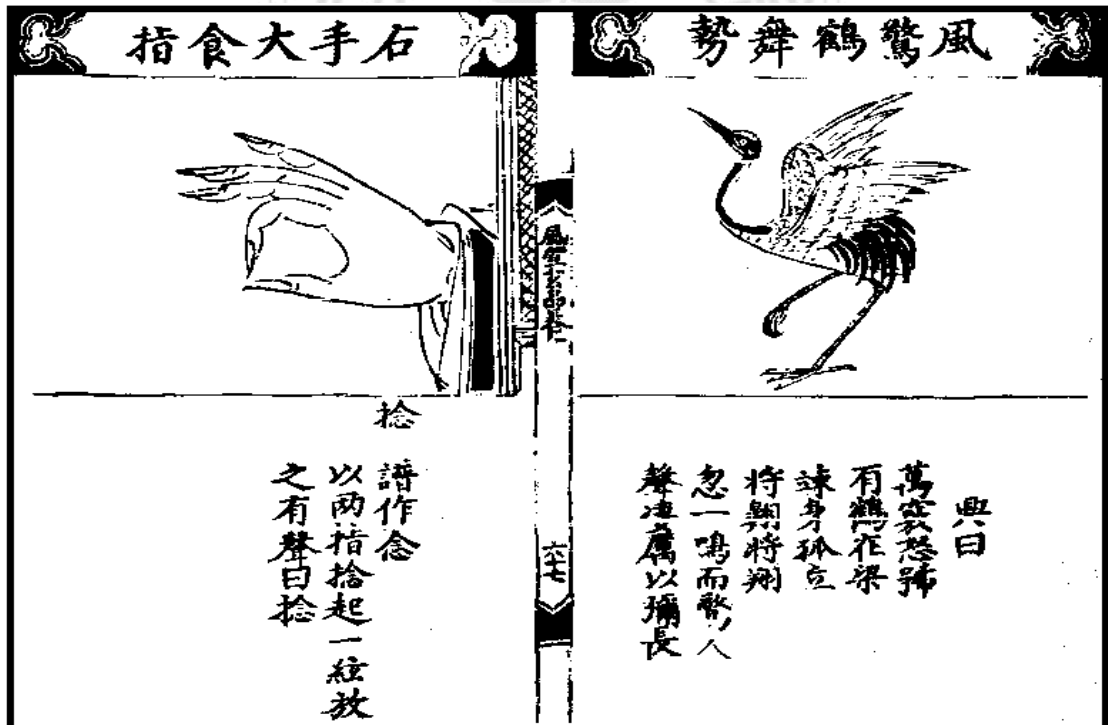 風驚鶴舞勢
興曰
萬竅怒號
有鶴在梁
竦身孤立
將翺將翔
忽一鳴而驚人
聲凄厲以彌長
六十七
石手大食指
捻
譜作念
以两指捻起一絃放
之有聲曰捻